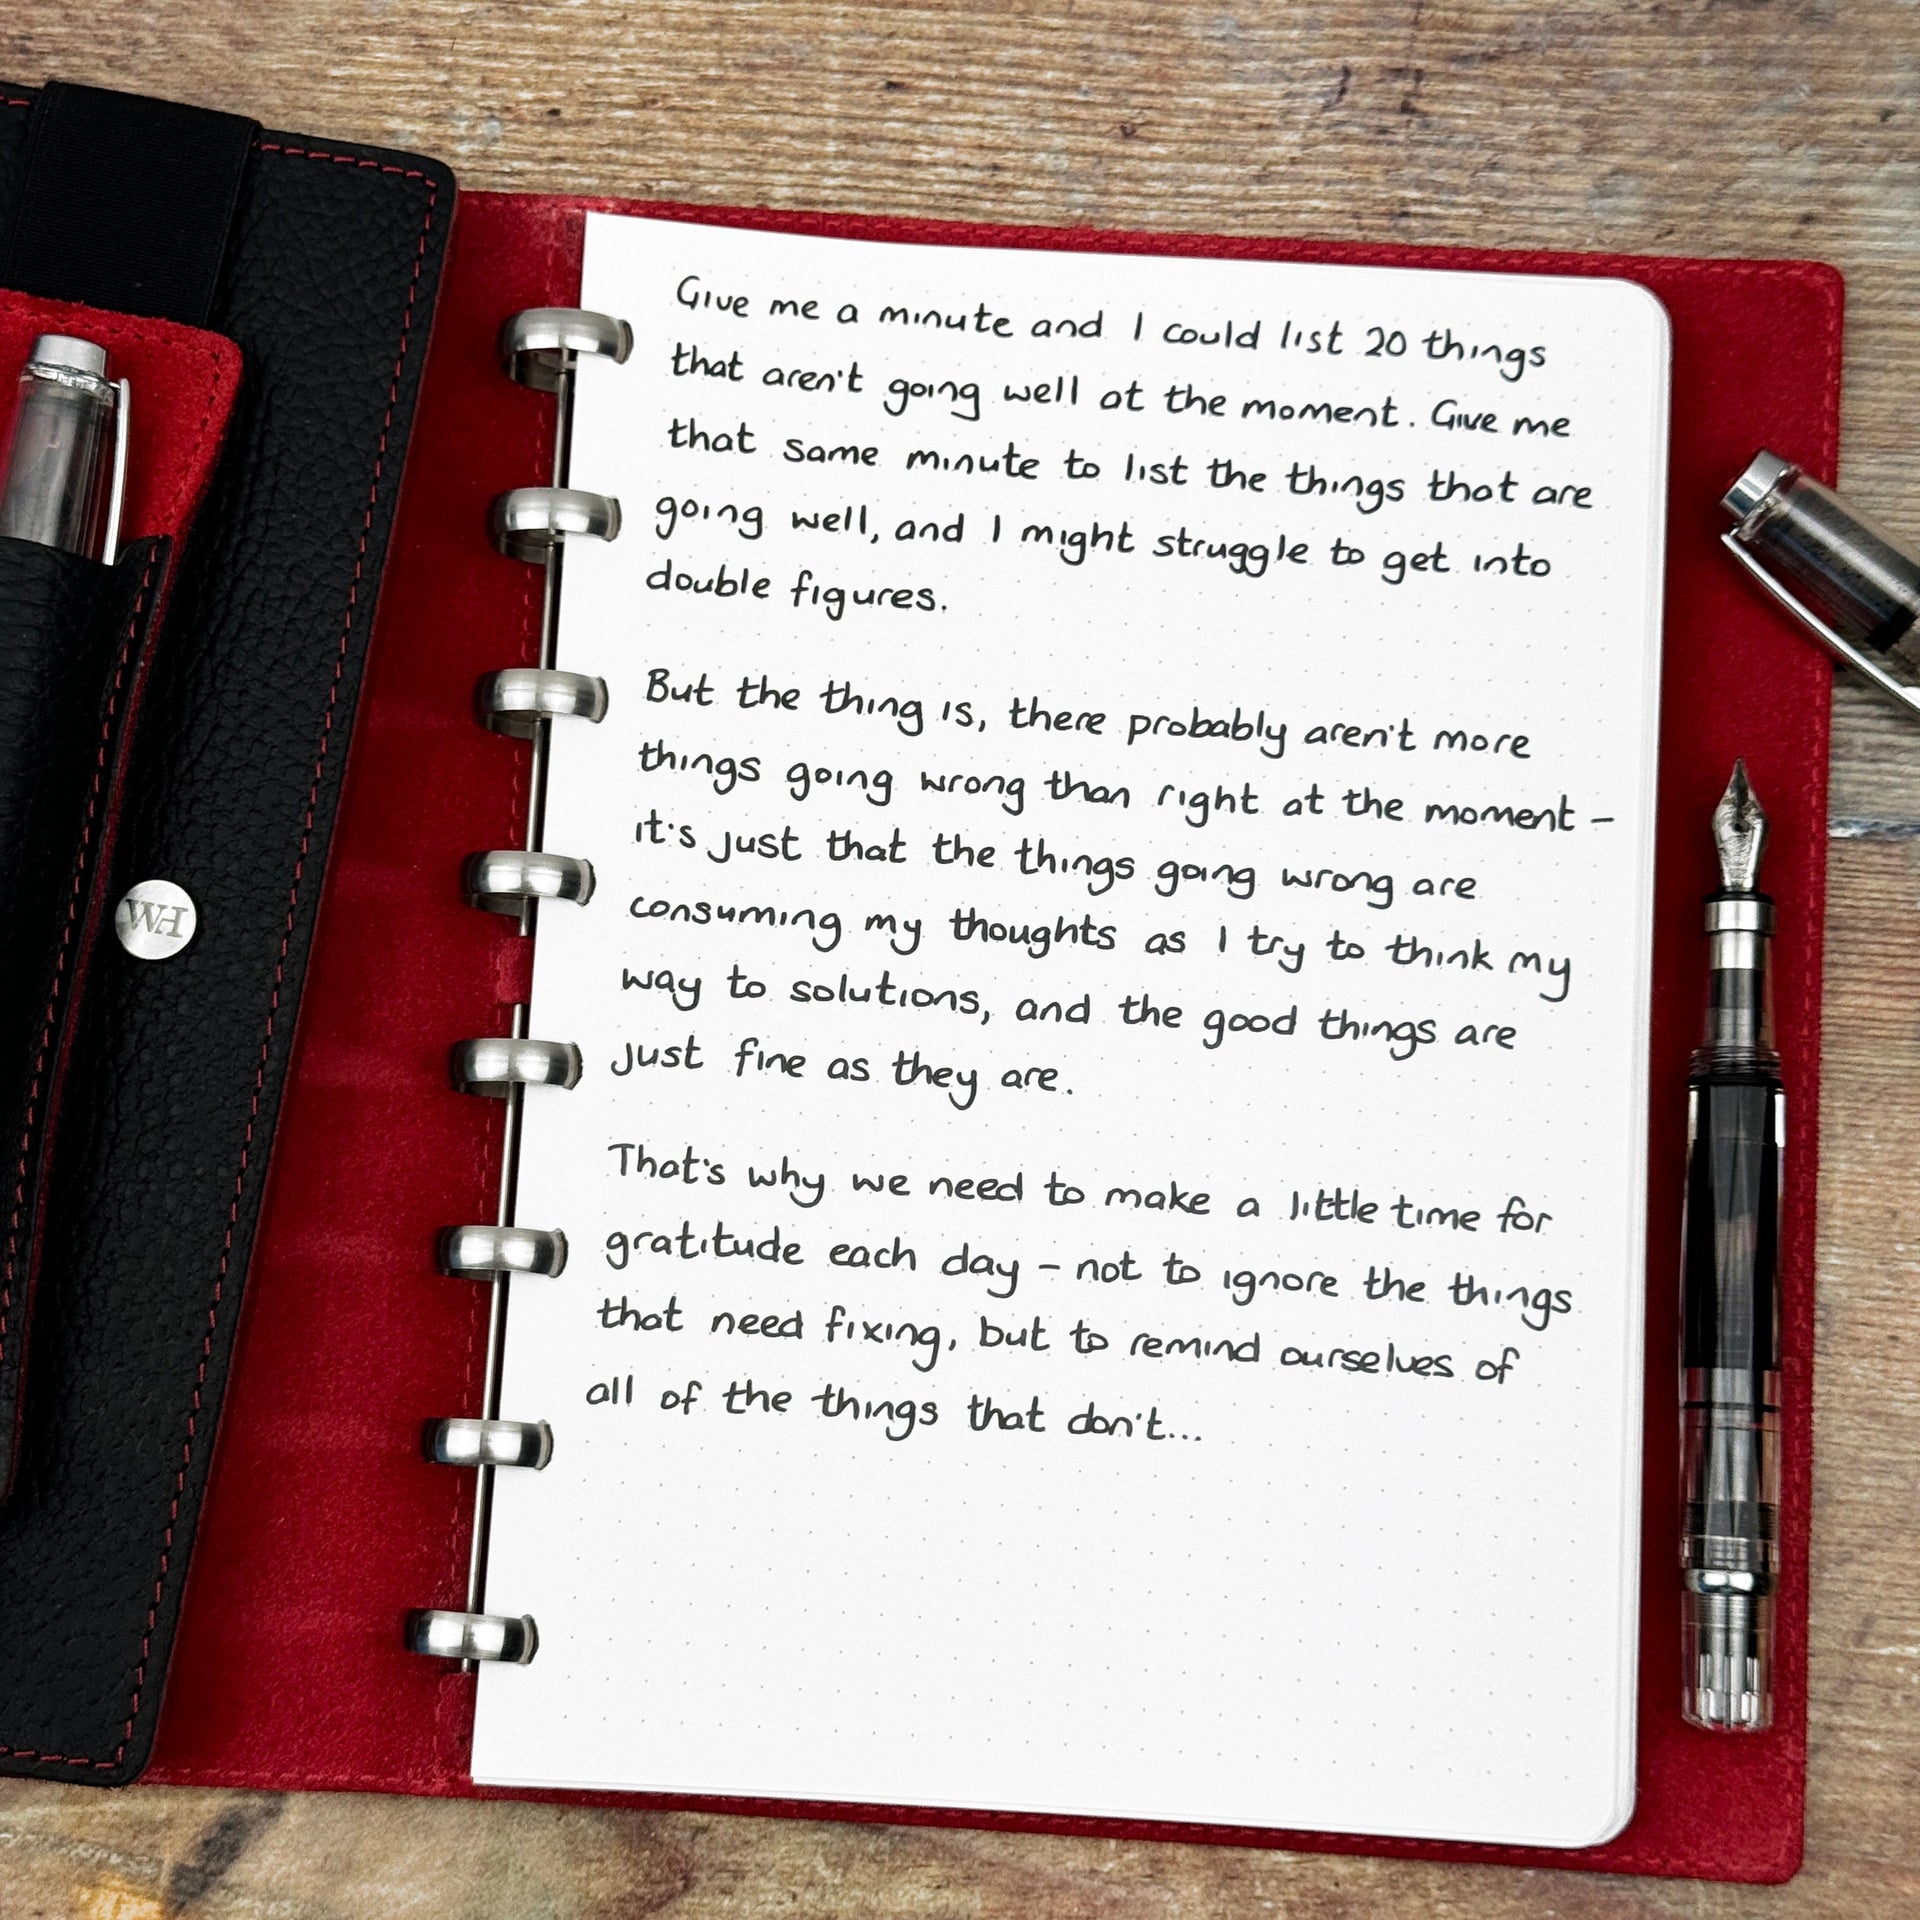 Give me a minute and I could list 20 things
that aren't going well at the moment. Give me
that same minute to list the things that are
going well, and I might struggle to get into
double figures.
But the thing is, there probably aren't more
things going wrong than right at the moment –
it's just that the things going wrong are
consuming my thoughts as I try to think my
way to solutions, and the good things are
just fine as they are.
That's why we need to make a little time for
gratitude each day – not to ignore the things
that need fixing, but to remind ourselves of
all of the things that don't...
WH